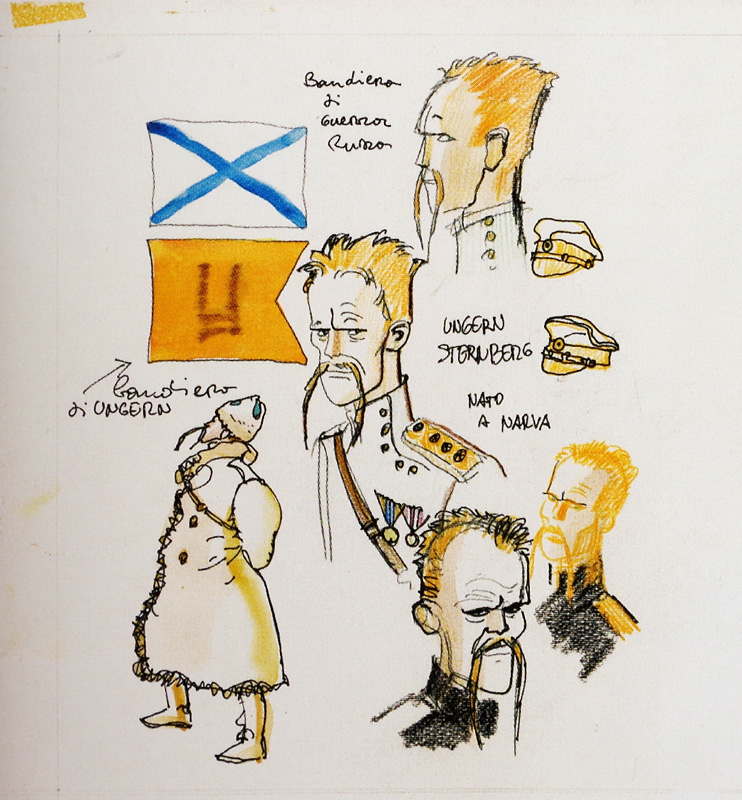 Bandiera
di
Guerra
Russa
UNGERN
STERNBERG
NATO
A NARVA
bandiera
di UNGERN